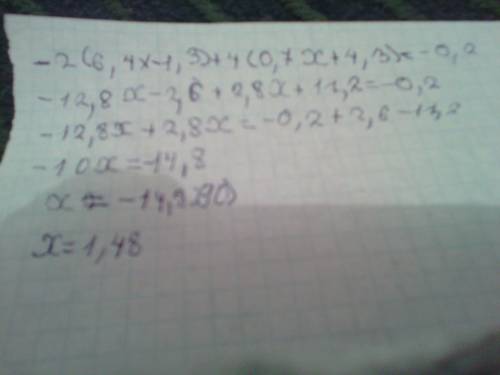 -2(6,4x-1,3)+4(0,7x+4,3)=-0,2
-12,8x-2,6+2,8x+17,2=-0,2
-12,8x+2,8x=-0,2+2,6-17,2
-10x=-14,8
x=-14,8:(-10)
x=1,48